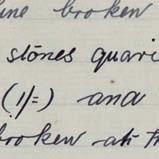 ine broken
stones quari
(1/=) and
broken at th